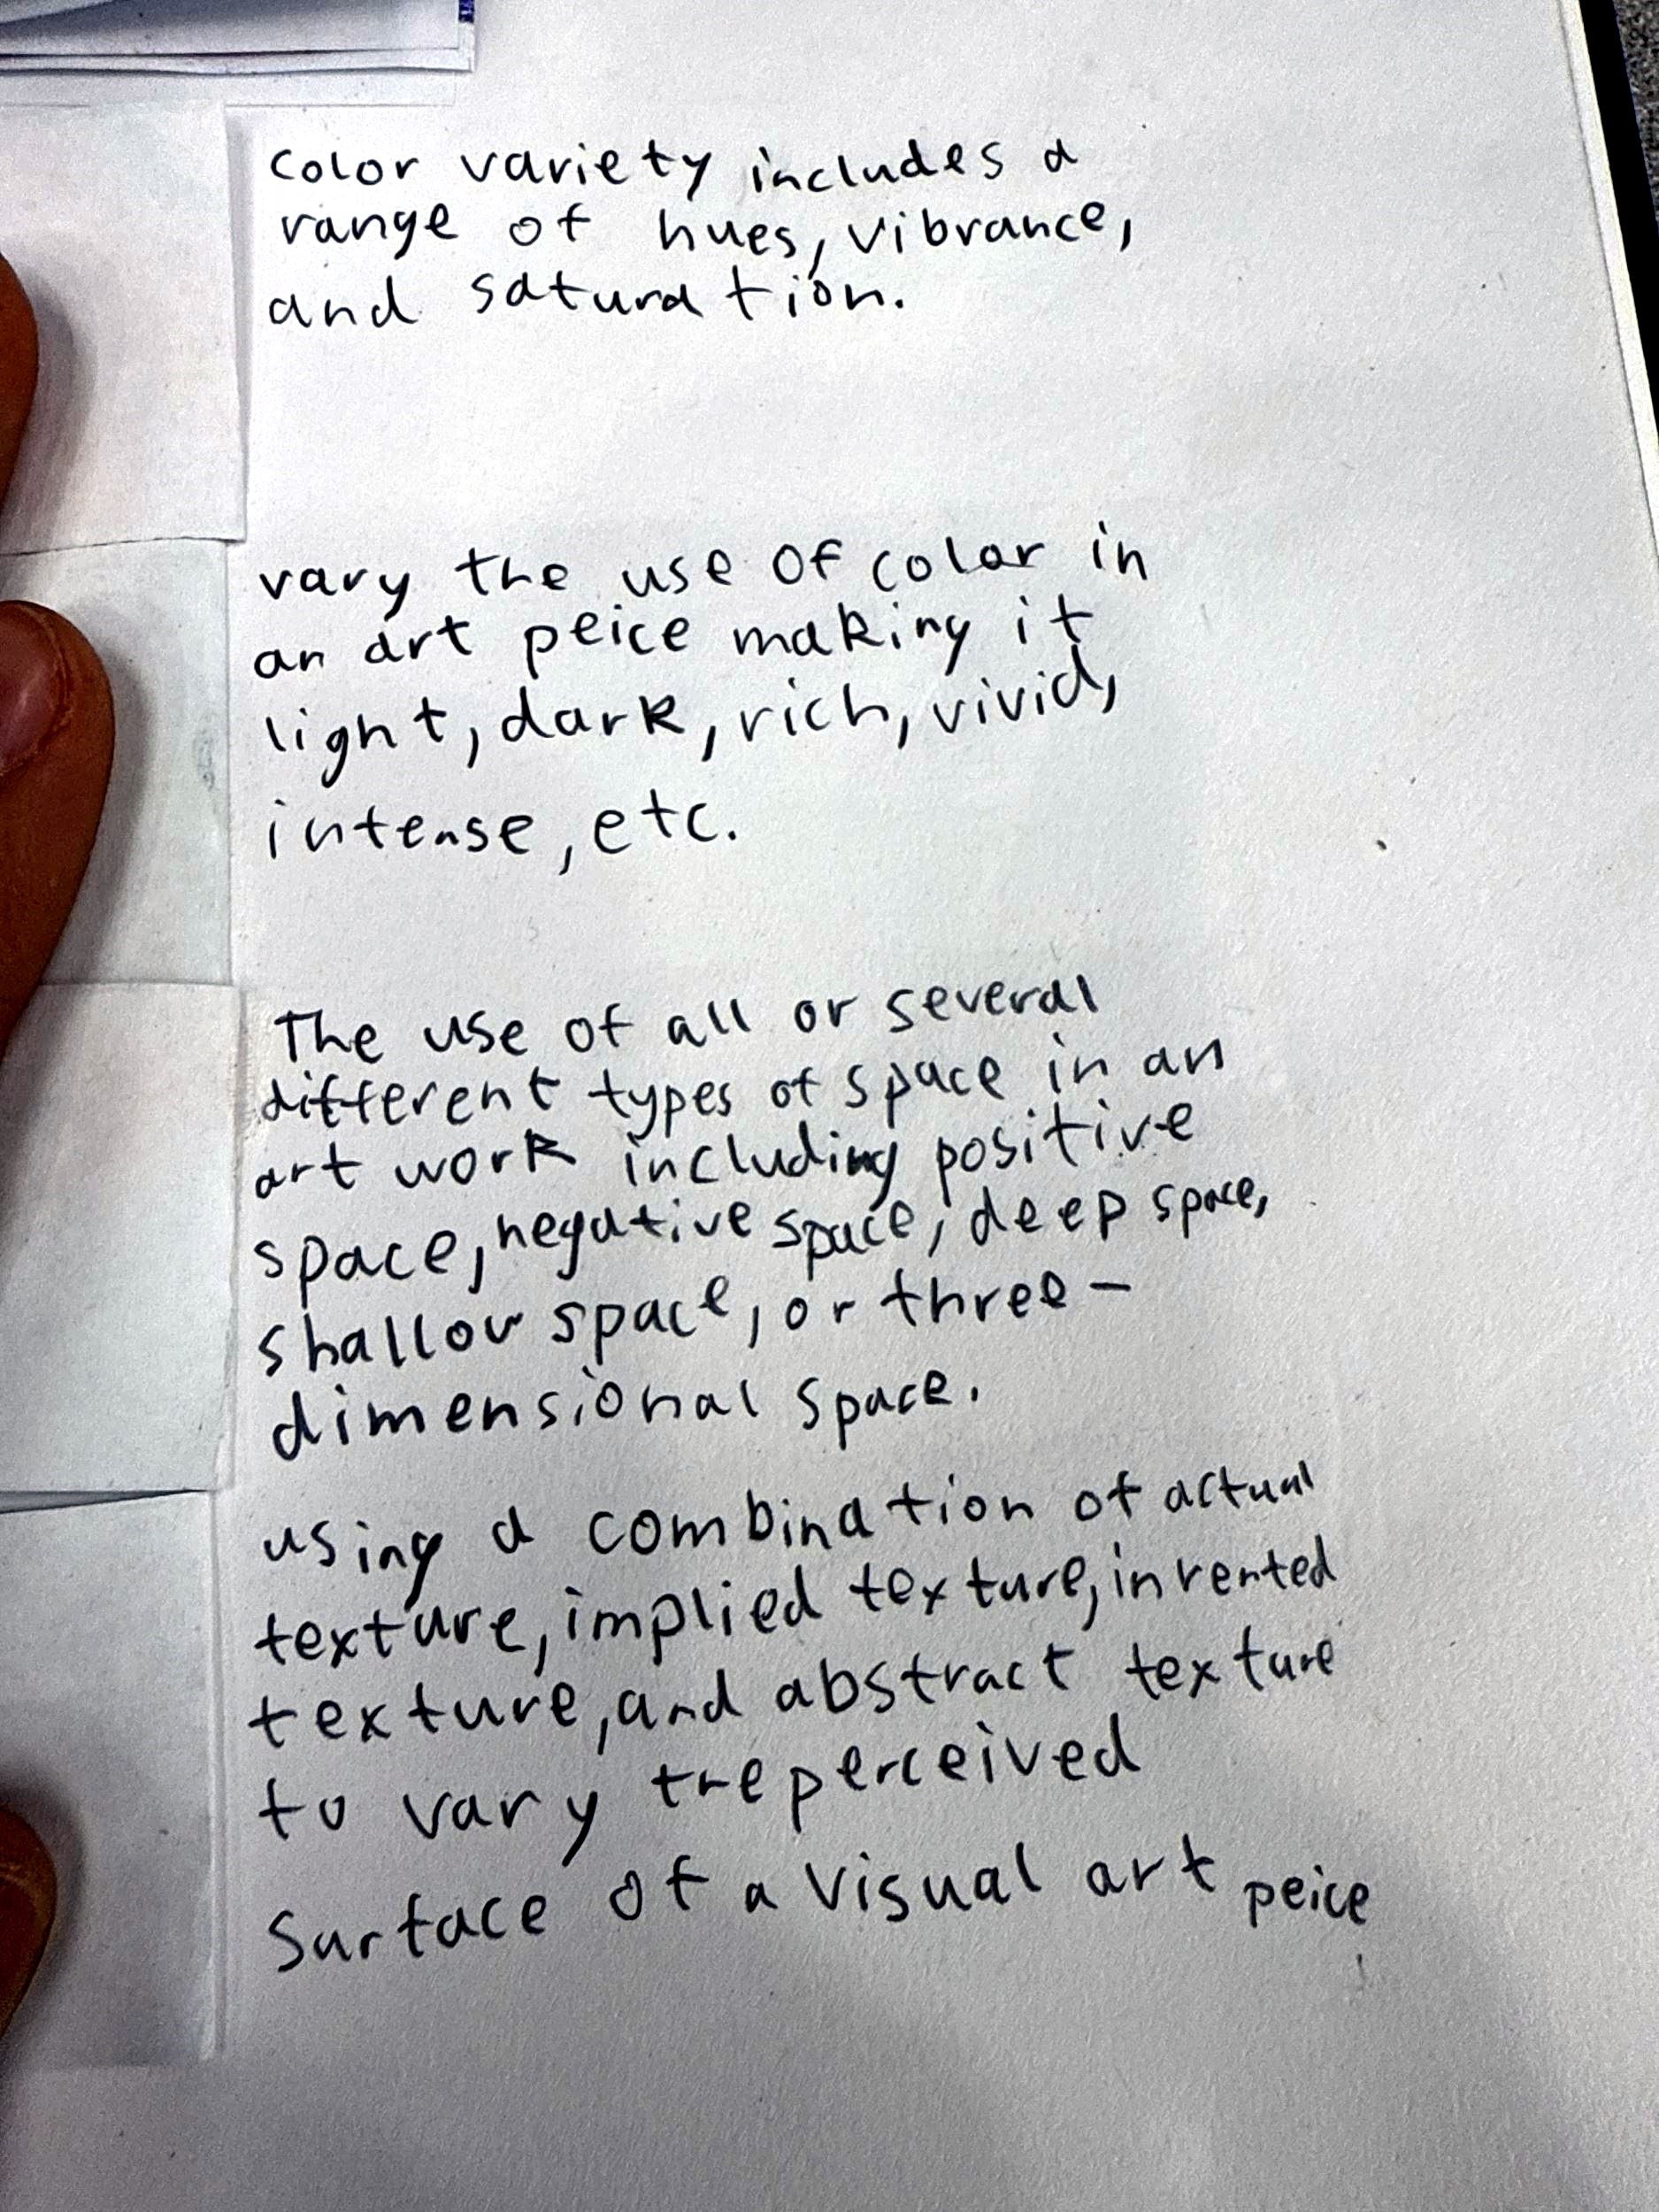 color variety includes a
range of hues, vibrance,
and saturation.
vary the use of color in
an art peice making it
light, dark, rich, vivid,
intense, etc.
The use of all or several
different types of space in an
art work including positive
space, negative space, deep space,
shallow space, or three-
dimensional space.
using a combination of actual
texture, implied texture, invented
texture, and abstract texture
to vary the perceived
surface of a visual art peice